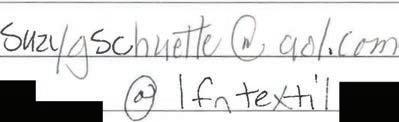 suzygschuette@aol.com
@lfntextil